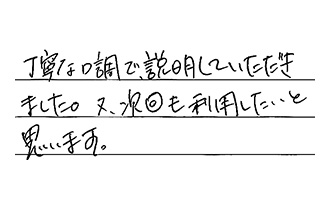 丁寧な口調で、説明していただき
ました。又、次回も利用したいと
思います。